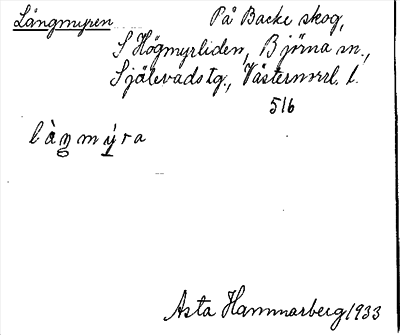 Långmyren På Backe skog,
S Högmyrliden, Björna sn.,
Själevads tg., Västernorrl. l.
516
làŋmýra
Asta Hammarberg 1933